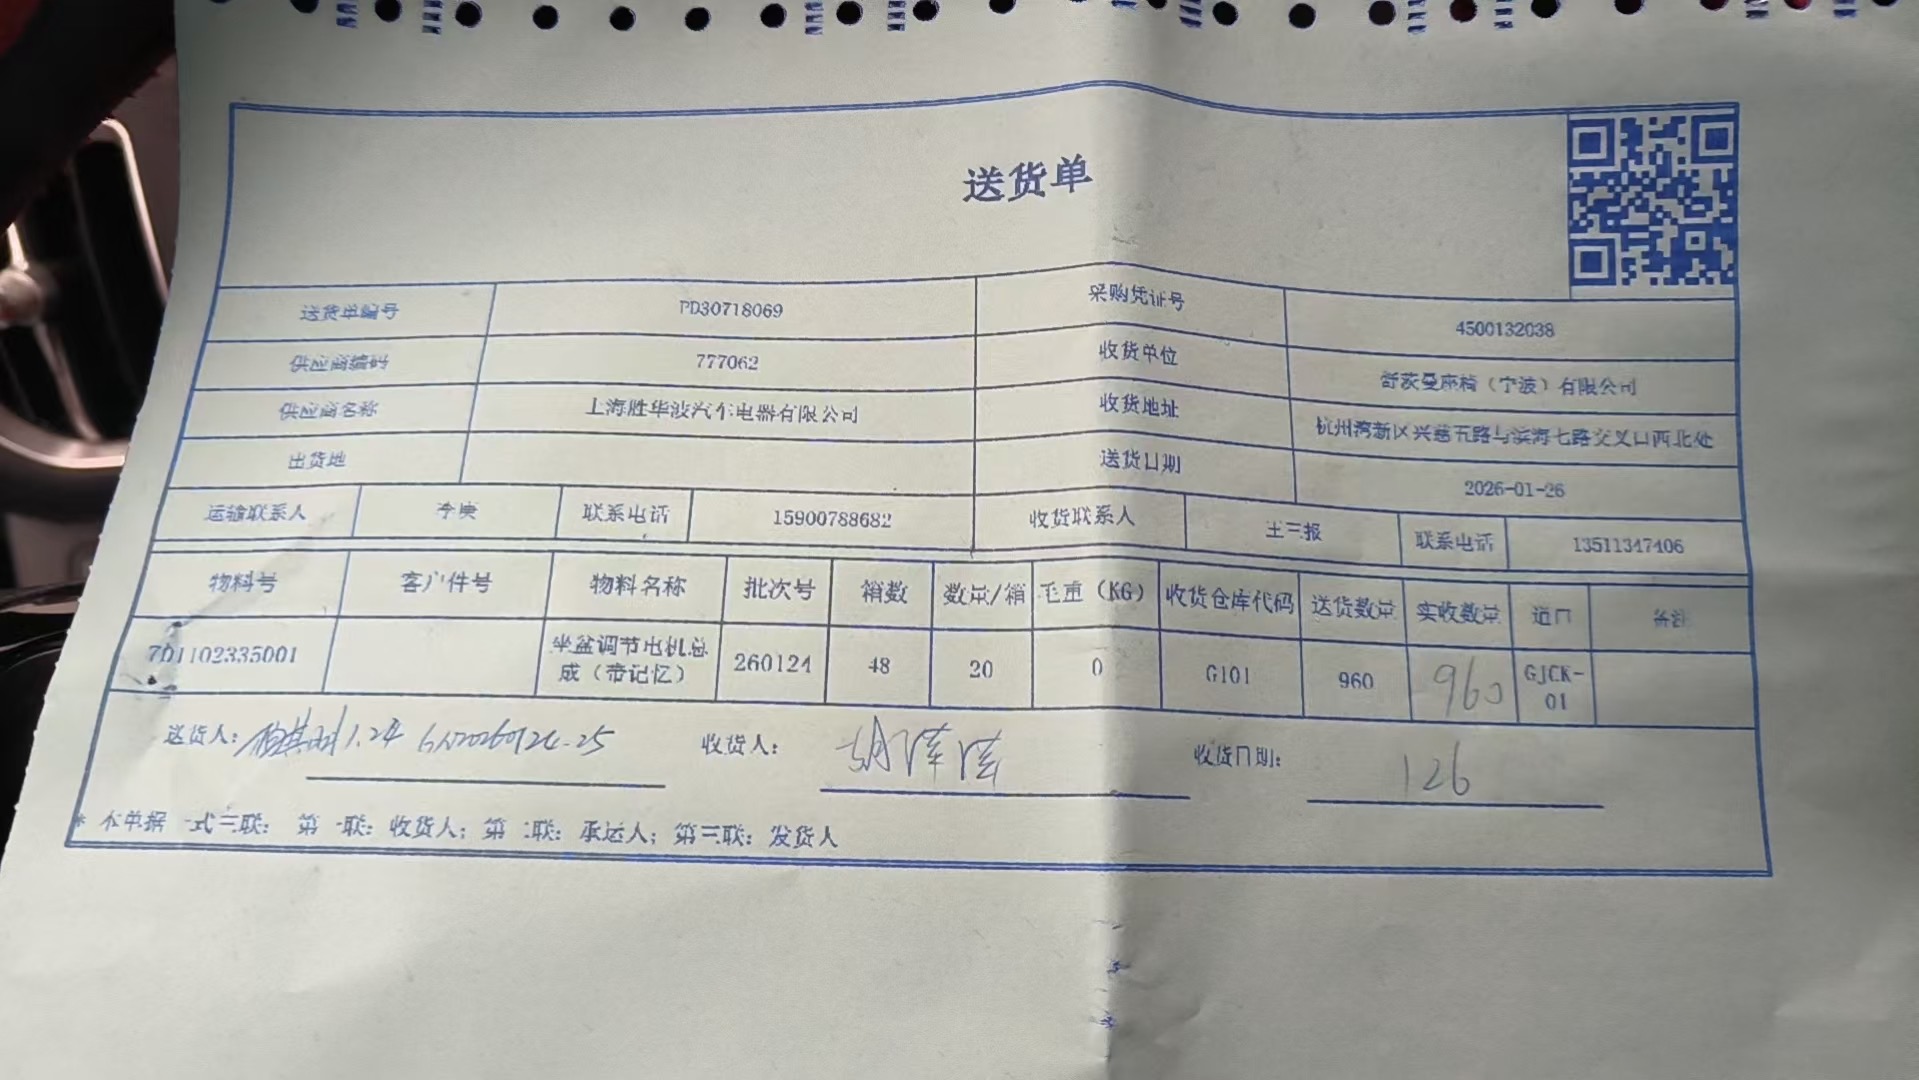 送货单
送货单编号 PD30718069 采购凭证号 4500132038
供应商编号 777062 收货单位 舒茨曼座椅（宁波）有限公司
供应商名称 上海胜华波汽车电器有限公司 收货地址 杭州湾新区兴慈五路与滨海七路交叉口西北处
出货地 送货日期 2026-01-26
运输联系人 冷庚 联系电话 15900788682 收货联系人 王三报 联系电话 13511347406
物料号 客户件号 物料名称 批次号 箱数 数量/箱 毛重（KG） 收货仓库代码 送货数量 实收数量 道口 备注
7D1102335001 坐盆调节电机总成（带记忆） 260124 48 20 0 G101 960 960 GJCK-01
送货人： 1.24 收货人： 胡 收货日期： 126
* 本单据一式三联：第一联：收货人；第二联：承运人；第三联：发货人